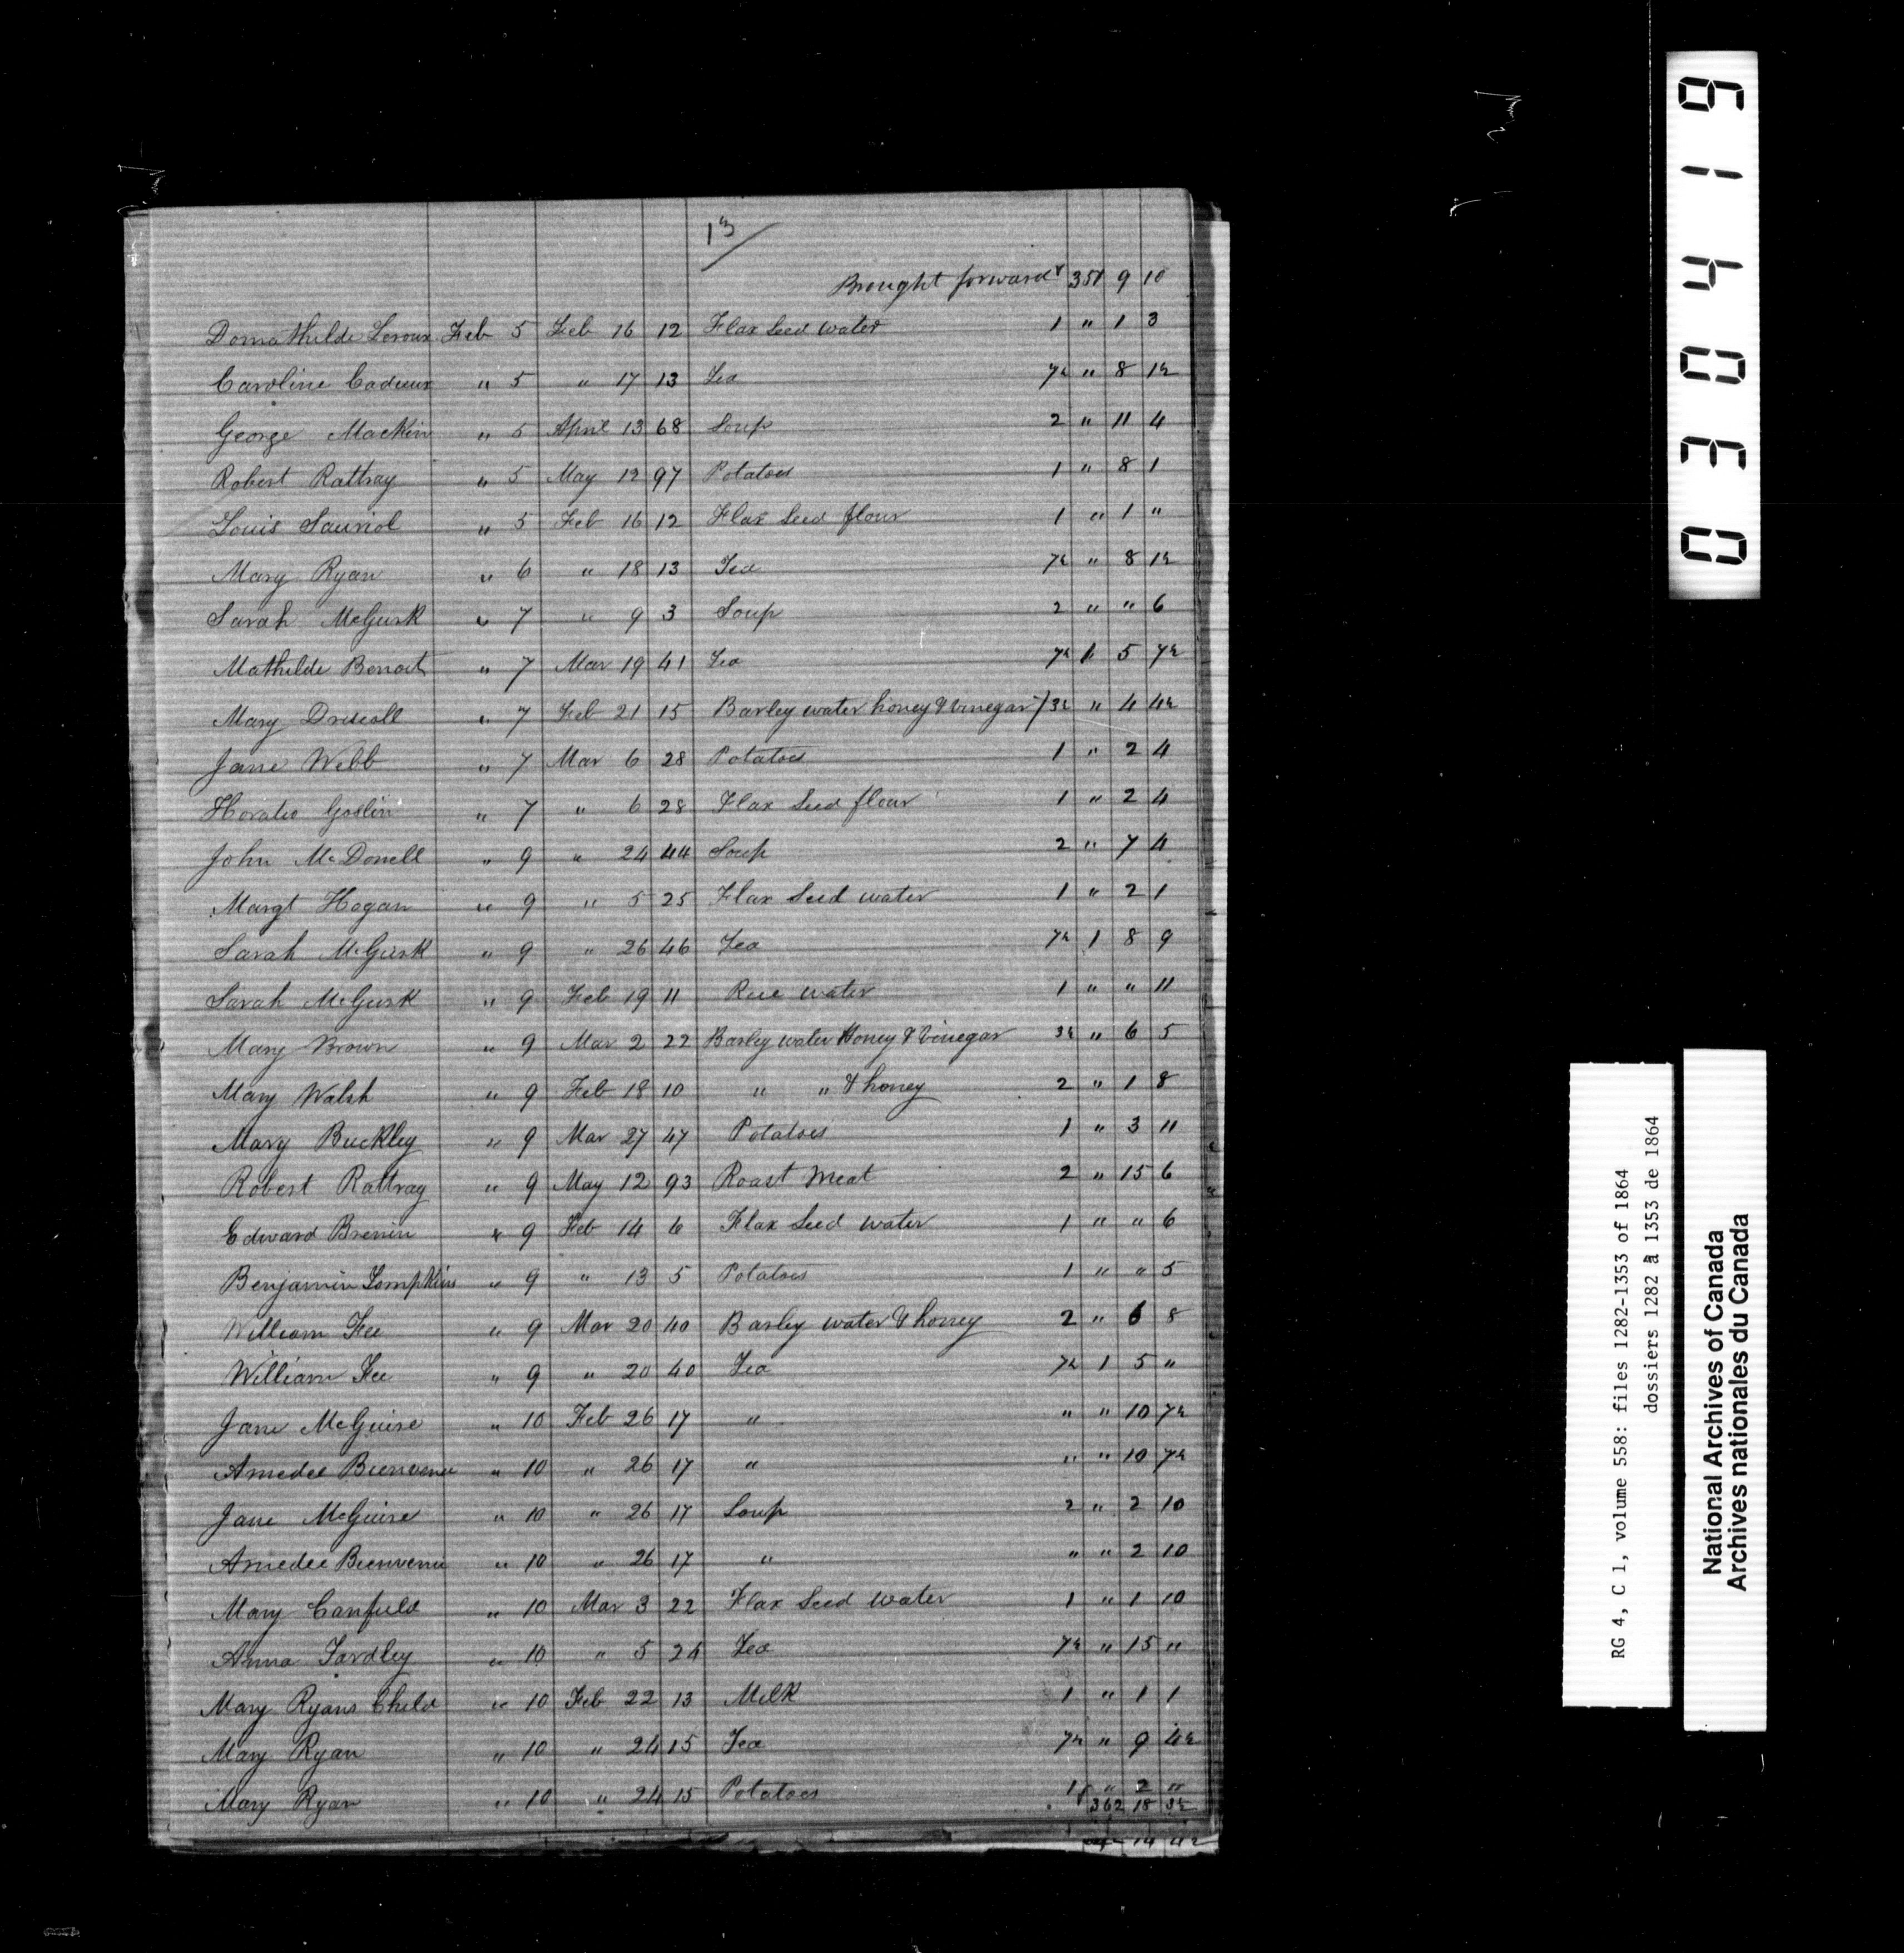 13/
Brought forward 351 9 10
Domathilde Leroux Feb 5 Feb 16 12 Flax Seed water 1 " 1 3
Caroline Cadieux " 5 " 17 13 Tea 7½ " 8 1½
George Mackin " 5 April 13 68 Soup 2 " 11 4
Robert Rattray " 5 May 12 97 Potatoes 1 " 8 1
Louis Sauriol " 5 Feb 16 12 Flax Seed flour 1 " 1 "
Mary Ryan " 6 " 18 13 Tea 7½ " 8 1½
Sarah McGurk " 7 " 9 3 Soup 2 " " 6
Mathilde Benoit " 7 Mar 19 41 Tea 7½ 1 5 7½
Mary Driscoll " 7 Feb 21 15 Barley water honey & vinegar 3½ " 4 4½
Jane Webb " 7 Mar 6 28 Potatoes 1 " 2 4
Horatio Goslin " 7 " 6 28 Flax Seed flour 1 " 2 4
John McDonell " 9 " 24 44 Soup 2 " 7 4
Margt Hogan " 9 " 5 25 Flax Seed water 1 " 2 1
Sarah McGurk " 9 " 26 46 Tea 7½ 1 8 9
Sarah McGurk " 9 Feb 19 11 Rice water 1 " " 11
Mary Brown " 9 Mar 2 22 Barley water Honey & vinegar 3½ " 6 5
Mary Walsh " 9 Feb 18 10 " " & honey 2 " 1 8
Mary Buckley " 9 Mar 27 47 Potatoes 1 " 3 11
Robert Rattray " 9 May 12 93 Roast Meat 2 " 15 6
Edward Brenin " 9 Feb 14 6 Flax Seed water 1 " " 6
Benjamin Tompkins " 9 " 13 5 Potatoes 1 " " 5
William Fee " 9 Mar 20 40 Barley water & honey 2 " 6 8
William Fee " 9 " 20 40 Tea 7½ 1 5 "
Jane McGuire " 10 Feb 26 17 " " " 10 7½
Amedee Bienvenu " 10 " 26 17 " " " 10 7½
Jane McGuire " 10 " 26 17 Soup 2 " 2 10
Amedee Bienvenu " 10 " 26 17 " " " 2 10
Mary Canfield " 10 Mar 3 22 Flax Seed water 1 " 1 10
Anna Yardley " 10 " 5 24 Tea 7½ " 15 "
Mary Ryans Child " 10 Feb 22 13 Milk 1 " 1 1
Mary Ryan " 10 " 24 15 Tea 7½ " 9 4½
Mary Ryan " 10 " 24 15 Potatoes 1 " 2 "
362 18 3½
14 4½
030419
RG 4, C 1, volume 558: files 1282-1353 of 1864
dossiers 1282 à 1353 de 1864
National Archives of Canada
Archives nationales du Canada